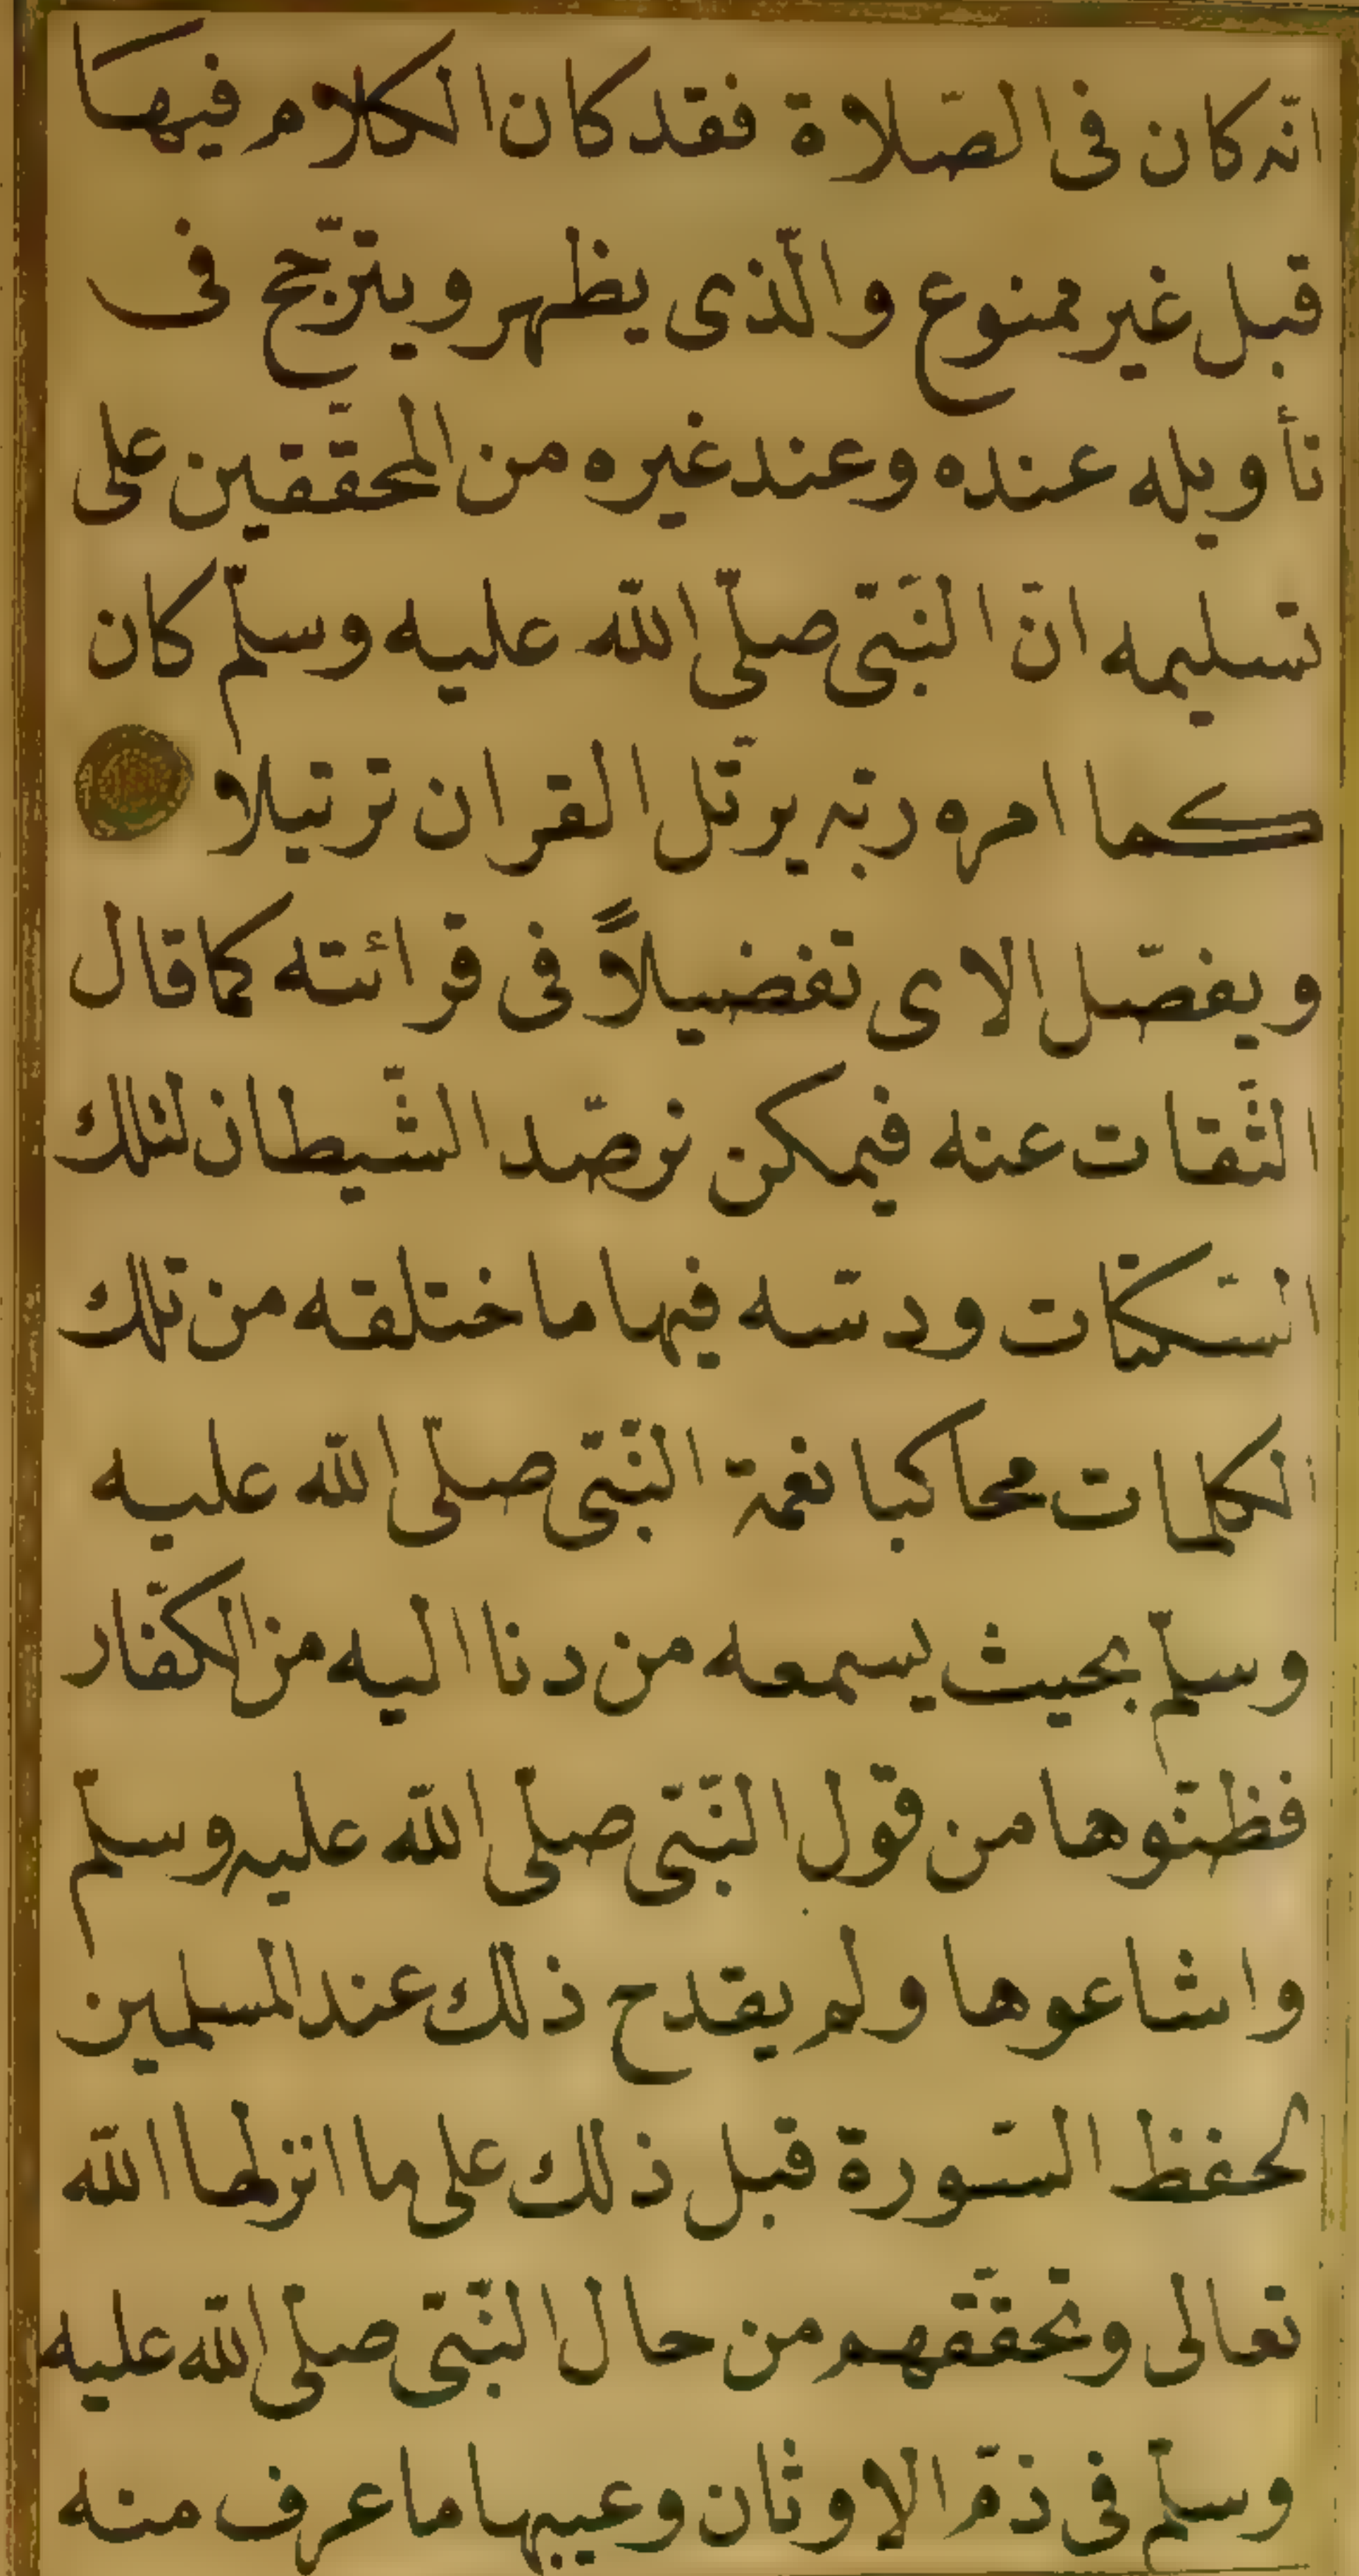 انّه كان فى الصّلاة فقد كان الكلام فيها
قبل غير ممنوع والّذى يظهر ويترّجح فى
تأويله عنده وعند غيره من المحقّقين على
تسليمه انّ النّبىّ صلّى الله عليه وسلّم كان
كما امره ربّه يرتّل القران ترتيلا
ويفصّل الاى تفضيلاً فى قرائته كما قال
الثّقات عنه فيمكن نرصّد الشّيطان لتلك
السّكتات ودسّه فيها ما ختلقه من تلك
الكلمات محاكيا نغمة النّبىّ صلّى الله عليه
وسلّم بحيث يسمعه من دنا اليه من الكفّار
فظنّوها من قول النّبىّ صلّى الله عليه وسلّم
واشاعوها ولم يقدح ذلك عند المسلمين
لحفظ السّورة قبل ذلك على ما انزلها الله
تعالى وتحقّقهم من حال النّبىّ صلّى الله عليه
وسلّم فى ذمّ الاوثان وعيبها ما عرف منه